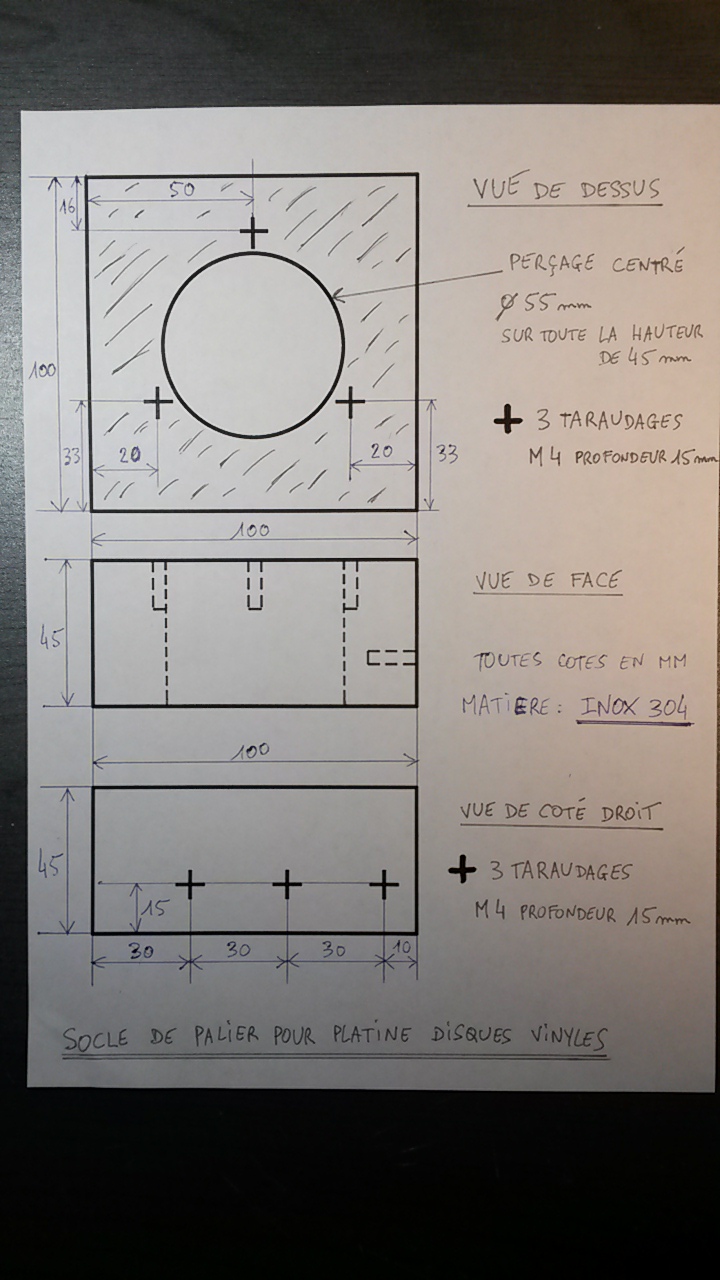 VUE DE DESSUS
50
16
PERÇAGE CENTRÉ
Ø 55 mm
SUR TOUTE LA HAUTEUR
DE 45 mm
100
+ 3 TARAUDAGES
M4 PROFONDEUR 15 mm
33
20
20
33
100
VUE DE FACE
45
TOUTES COTES EN MM
MATIERE : INOX 304
100
VUE DE COTÉ DROIT
45
+ 3 TARAUDAGES
M4 PROFONDEUR 15 mm
15
30
30
30
10
SOCLE DE PALIER POUR PLATINE DISQUES VINYLES